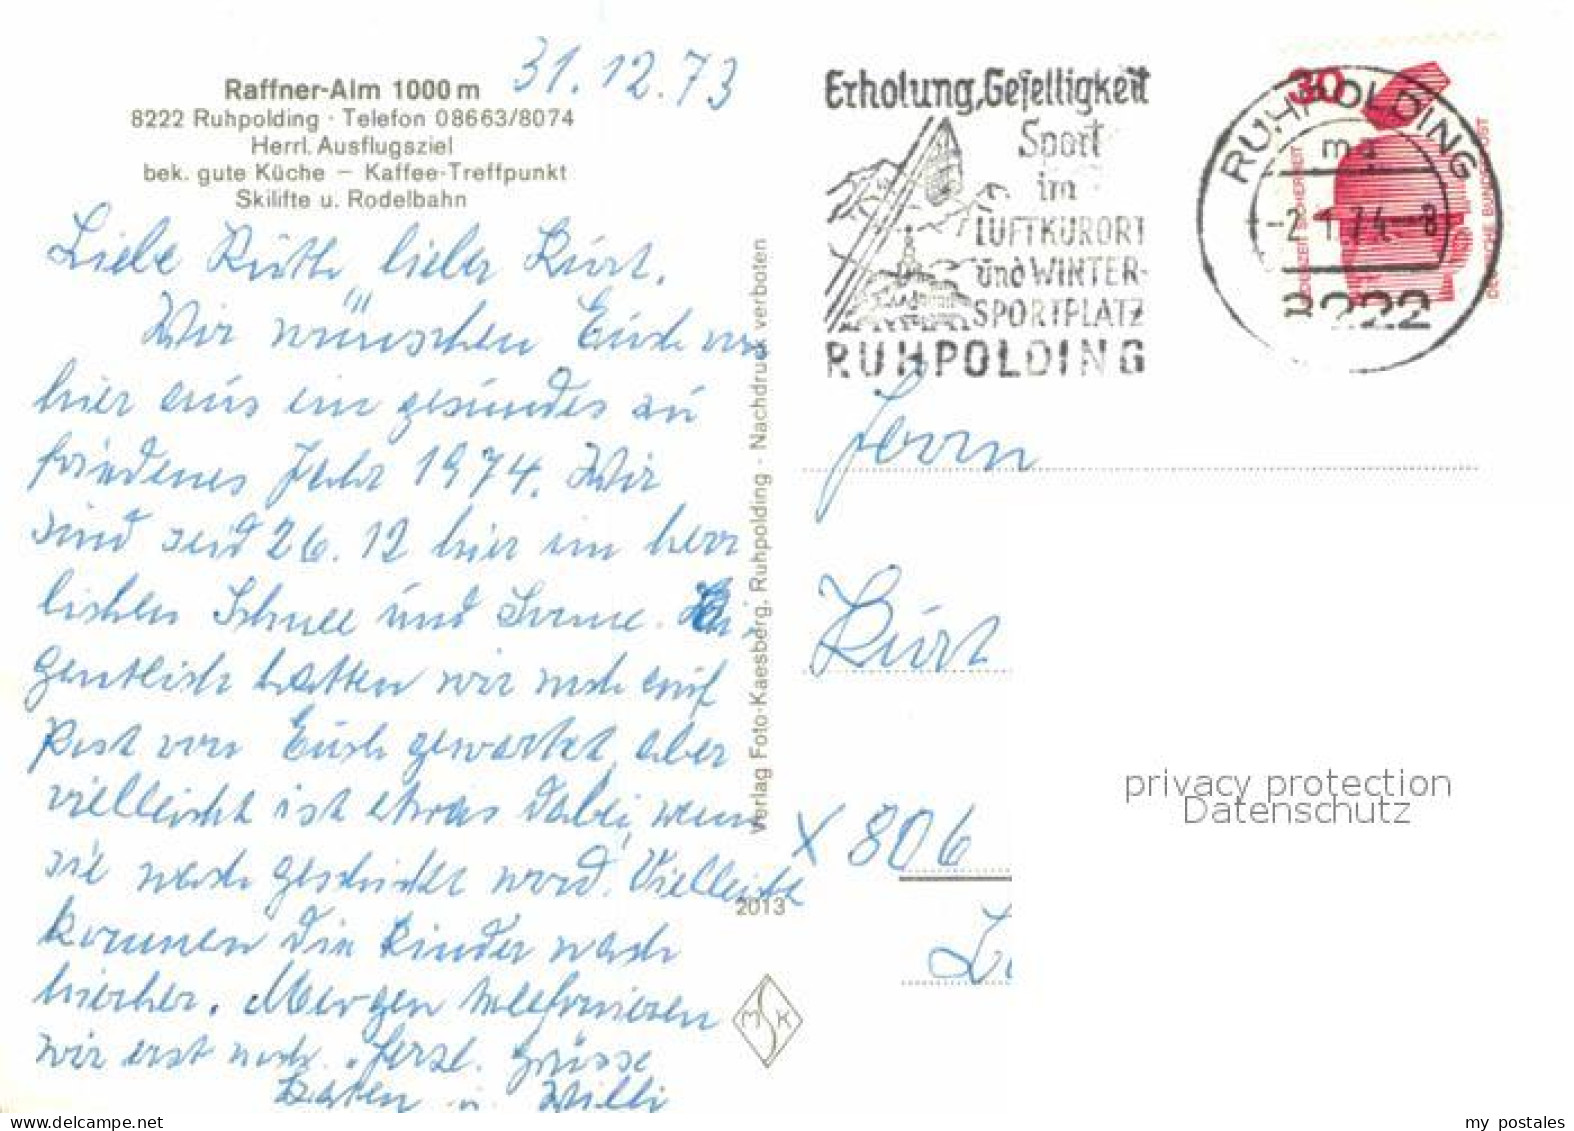 31.12.73
Raffner-Alm 1000 m
8222 Ruhpolding · Telefon 08663/8074
Herrl. Ausflugsziel
bek. gute Küche – Kaffee-Treffpunkt
Skilifte u. Rodelbahn
Liebe Ruth, lieber Kurt,
Wir wünschen Euch von
hier aus ein gesundes zu
friedenes Jahr 1974. Wir
sind seid 26.12 hier im herr
lichen Schnee und Sonne. Ei
gentlich hatten wir noch auf
Post von Euch gewartet, aber
vielleicht ist etwas dabei, wenn
sie nach geschickt word. Vielleicht
kommen die Kinder nach
hierher. Morgen telefonieren
wir erst noch. Herzl. Grüsse
u. Willi
Verlag Foto-Kaesberg, Ruhpolding · Nachdruck verboten
2013
MSK
Erholung, Geselligkeit
Sport
im
LUFTKURORT
und WINTER-
SPORTPLATZ
RUHPOLDING
RUHPOLDING
ma
-2.1.74-8
8222
30
JEDERZEIT SICHERHEIT
DEUTSCHE BUNDESPOST
Herrn
Kurt
X 806
privacy protection
Datenschutz
my postales
delcampe.net